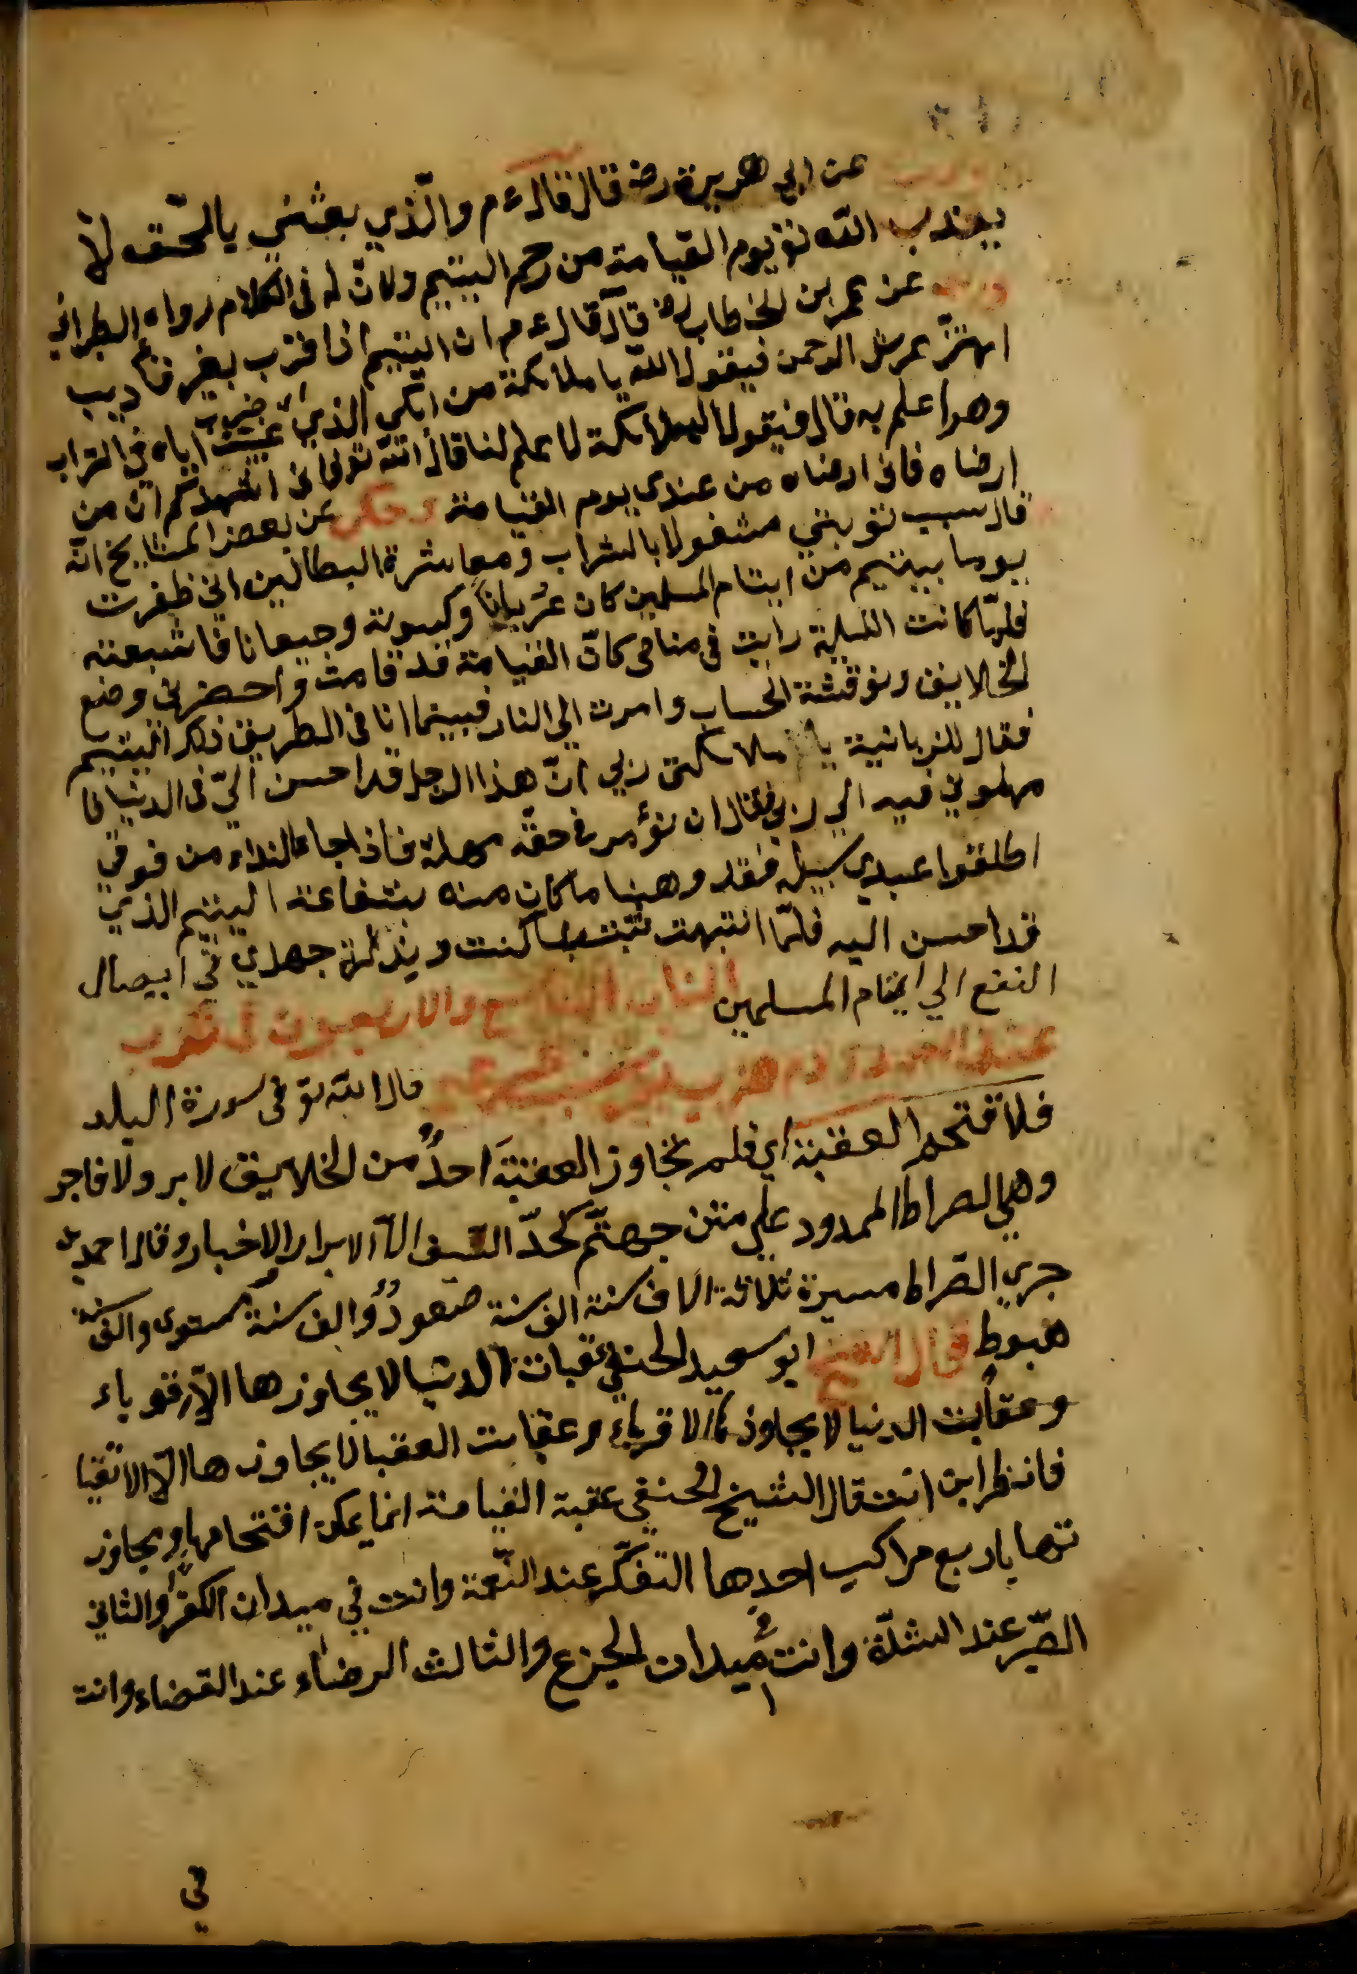 وروي عن ابي هريرة رضه قال قال ءم والّذي بعثني بالحّق لا
يعذب الله تع يوم القيامة من رحم اليتيم ولان له في الكلام رواه الطبراني
وروي عن عمر بن الخطاب رضه قال قال ءم ان اليتيم اذا ضرب بغير تأديب
اهتزّ عرش الرحمن فيقول الله يا ملائكة من ابكى الذي غيبت اباه في التراب
وهو اعلم به قال فيقول الملائكة لا علم لنا قال الله تع فاني اشهدكم ان من
ارضاه فاني ارضاه من عندي يوم القيامة وحكي عن بعض المشايخ انّه
قال سبب توبتي مشغولا بالشراب ومعاشرة البطالين اني ظفرت
يوما بيتيم من ايتام المسلمين كان عُريانًا وكسوته وجيعانا فاشبعته
فلمّا كانت الليلة رايت في منامي كانّ القيامة قد قامت واحضرني وضع
الخلايق ونوقشة الحساب وامرت الي النار فبينما انا في الطريق ذلك اليتيم
فقال للزبانية يا ملائكة ربي انّ هذا الرجل قد احسن اليّ في الدنيا فا
مهلوني فيه الي ربي فقال ان نؤمر في حقّه مهلة فاذا جاء النداء من فوقي
اطلقوا عبدي سبيله فقد وهبنا ما كان منه بشفاعة اليتيم الذي
قد احسن اليه فلمّا انتبهت تبت كنت جهدي في ايصال
النفع الي ايتام المسلمين الباب التاسع والاربعون في
قال الله تع في سورة البلد
فلا اقتحم العقبة اي فلم يجاوز العقبَة احدٌ من الخلايق لا بر ولا فاجر
وهي الصراط الممدود علي متن جهنّم كحدّ السّيف الّا الابرار الاخيار وقال احمد بن
حرب الصّراط مسيرة ثلاثة الاف سنة الف سنة صعودٌ والف سنة مستوي والف سنة
هبوط قال الشيخ ابو سعيد الحنفي عقبات الدنيا لا يجاوزها الّا الاقوياء
وعقابت الدنيا لا يجاوزها الا اقرباء وعقابت العقبا لا يجاوزها الّا الاتقيا
فانظر اين انت قال الشيخ الحنفي عقبة القيامة انما يمكن اقتحامها ومجاوز
تها باربع مراكب احدها التفكّر عند النّعمة وانت في ميدان الكفر والثاني
الصّبر عند الشدّة وانت في ميدان الجزع والثالث الرضاء عند القضاء وانت
في